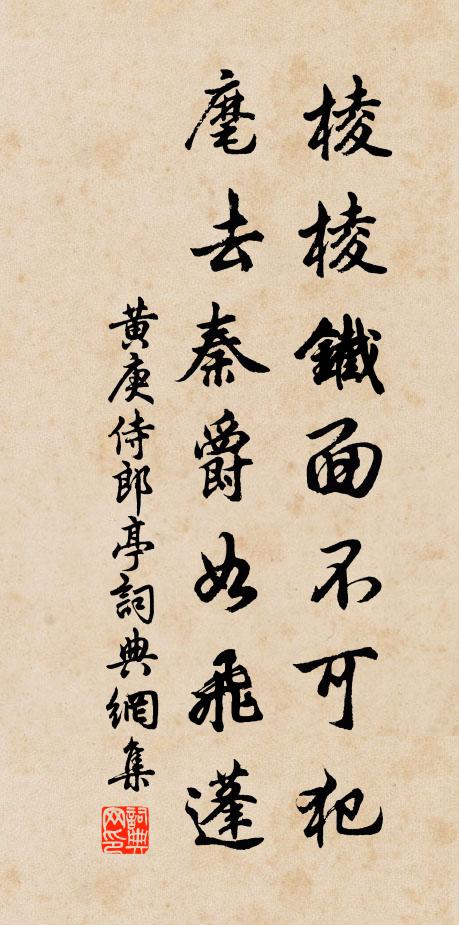 棱棱鐵面不可犯
麾去秦爵如飛蓬
黃庚侍郎亭詞典網集
詞典网印